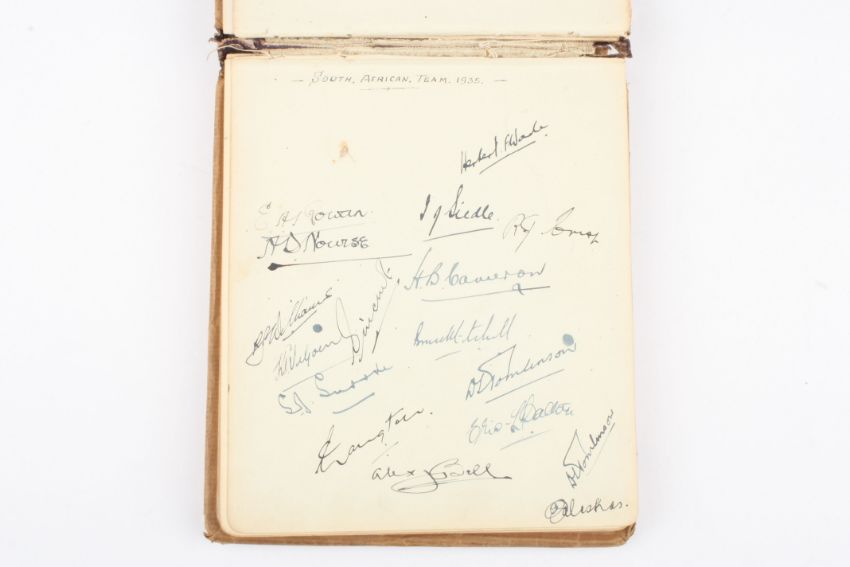 — SOUTH. AFRICAN. TEAM. 1935. —
Herbert F Wade
E A Rowan
I J Siedle
R J Crisp
A D Nourse
H. B. Cameron
R J Williams
K G Viljoen
C L Vincent
Bruce Mitchell
D S Tomlinson
S S Suzzle
Eric L Dalton
A Langton
Alex J Bell
D S Tomlinson
X Balaskas.